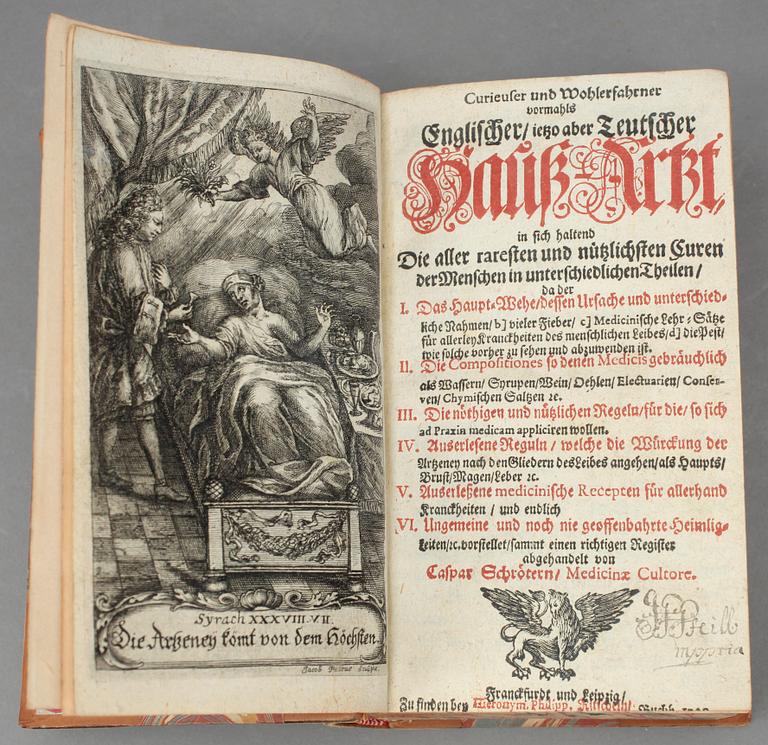 Syrach XXXVIII. V. II.
Die Artzeney kömt von dem Höchsten.
Jacob Petrus Sculps.
Curieuser und Wohlerfahrner
vormahls
Englischer/ ietzo aber Teutscher
Hauß-Artzt,
in sich haltend
Die aller raresten und nützlichsten Curen
der Menschen in unterschiedlichen Theilen/
da der
I. Das Haupt-Wehe/dessen Ursache und unterschied-
liche Nahmen/ b] vieler Fieber/ c] Medicinische Lehr-Sätze
für allerley Kranckheiten des menschlichen Leibes/ d] die Pest/
wie solche vorher zu sehen und abzuwenden ist.
II. Die Compositiones so denen Medicis gebräuchlich
als Wassern/ Syrupen/ Wein/ Oehlen/ Electuarien/ Conser-
ven/ Chymischen Saltzen ꝛc.
III. Die nöthigen und nützlichen Regeln/ für die/ so sich
ad Praxin medicam appliciren wollen.
IV. Auserlesene Reguln/ welche die Würckung der
Artzeney nach den Gliedern des Leibes angehen/ als Haupts/
Brust/ Magen/ Leber ꝛc.
V. Auserleßene medicinische Recepten für allerhand
Kranckheiten/ und endlich
VI. Ungemeine und noch nie geoffenbahrte Heimlig-
keiten/ꝛc. vorstellet/ sammt einen richtigen Register
abgehandelt von
Caspar Schrötern/ Medicinæ Cultore.
Franckfurdt und Leipzig/
Zu finden bey Hieronym. Philipp. Buchh.